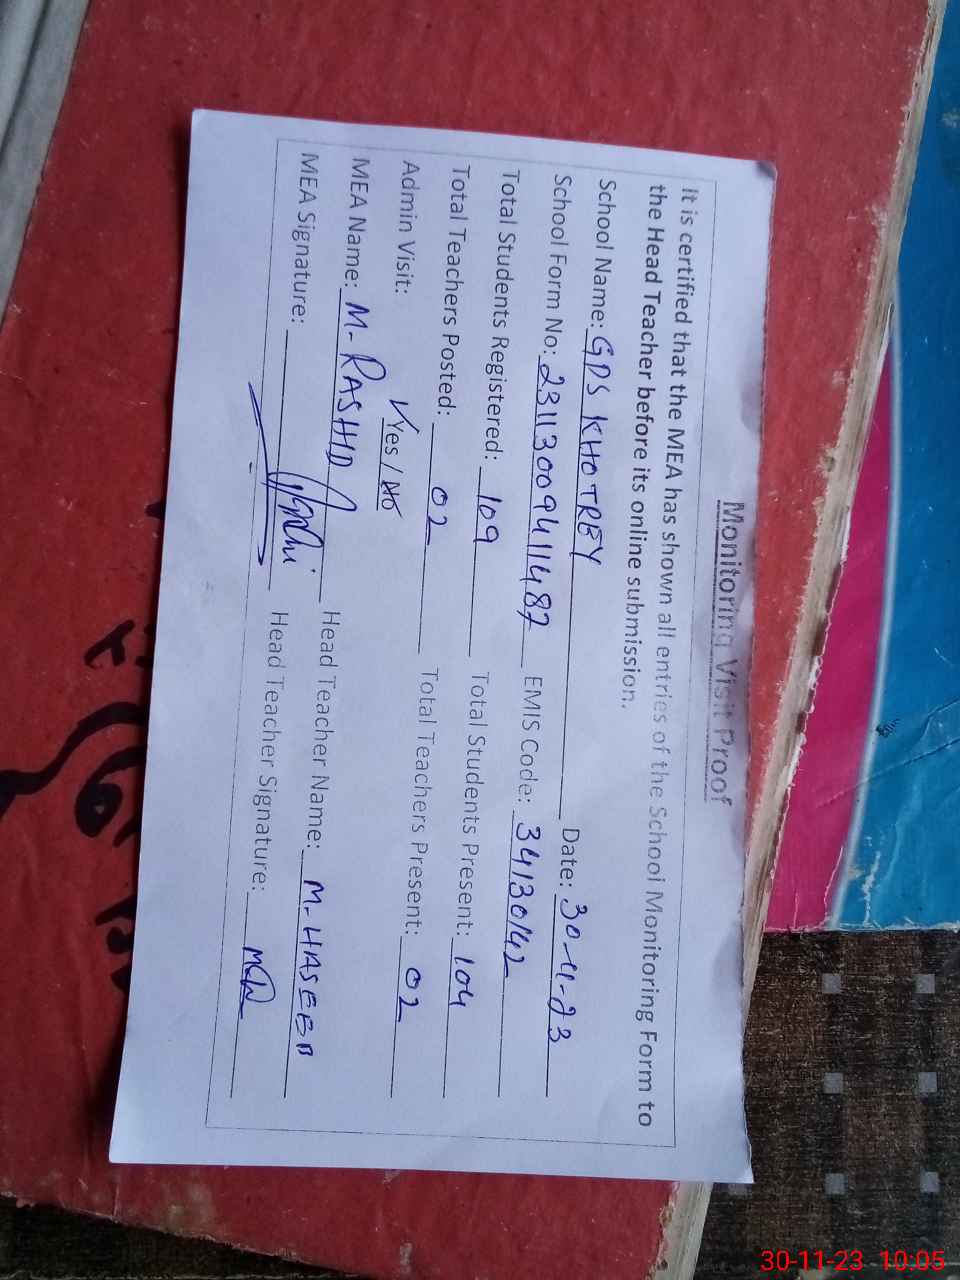 Monitoring Visit Proof
It is certified that the MEA has shown all entries of the School Monitoring Form to
the Head Teacher before its online submission.
School Name: GPS KHOTREY Date: 30-11-23
School Form No: 231130094111487 EMIS Code: 34130142
Total Students Registered: 109 Total Students Present: 104
Total Teachers Posted: 02 Total Teachers Present: 02
Admin Visit: ✓Yes / No
MEA Name: M- RASHID Head Teacher Name: M-HASEEB
MEA Signature: Head Teacher Signature:
30-11-23 10:05